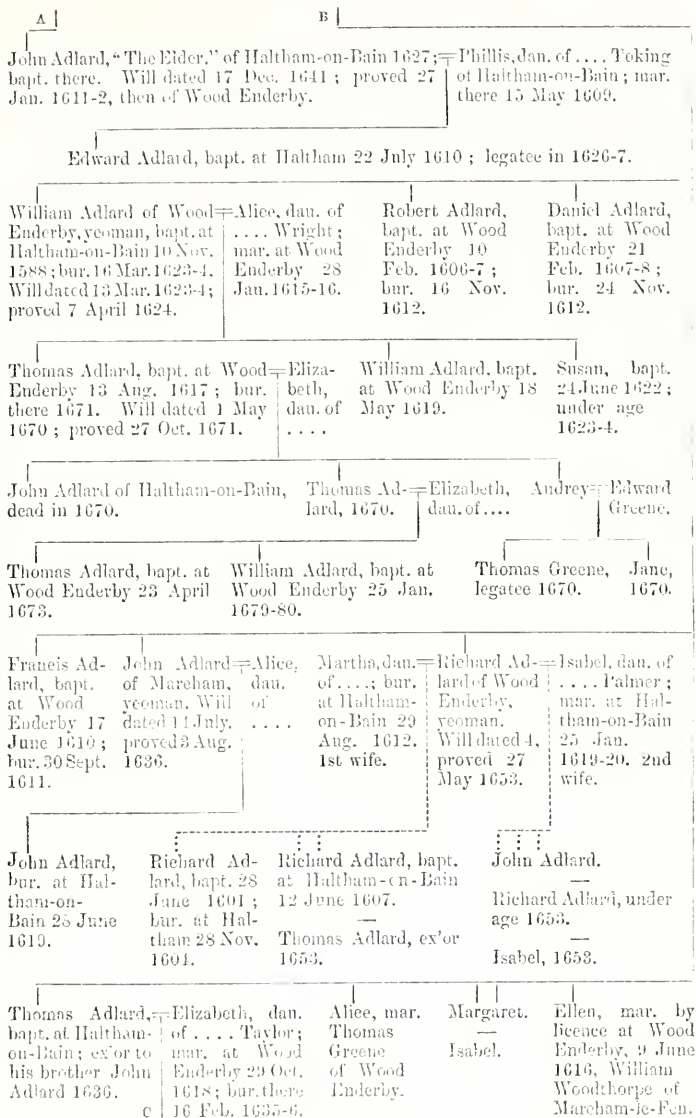 A B
John Adlard, "The Elder," of Haltham-on-Bain 1627;
bapt. there. Will dated 17 Dec. 1641; proved 27
Jan. 1641-2, then of Wood Enderby.
Phillis, dau. of .... Toking
of Haltham-on-Bain; mar.
there 15 May 1609.
Edward Adlard, bapt. at Haltham 22 July 1610; legatee in 1626-7.
William Adlard of Wood
Enderby, yeoman, bapt. at
Haltham-on-Bain 10 Nov.
1588; bur. 16 Mar. 1623-4.
Will dated 13 Mar. 1623-4;
proved 7 April 1624.
Alice, dau. of
.... Wright;
mar. at Wood
Enderby 28
Jan. 1615-16.
Robert Adlard,
bapt. at Wood
Enderby 10
Feb. 1606-7;
bur. 16 Nov.
1612.
Daniel Adlard,
bapt. at Wood
Enderby 21
Feb. 1607-8;
bur. 24 Nov.
1612.
Thomas Adlard, bapt. at Wood
Enderby 13 Aug. 1617; bur.
there 1671. Will dated 1 May
1670; proved 27 Oct. 1671.
Eliza-
beth,
dau. of
....
William Adlard, bapt.
at Wood Enderby 18
May 1619.
Susan, bapt.
24 June 1622;
under age
1623-4.
John Adlard of Haltham-on-Bain,
dead in 1670.
Thomas Ad-
lard, 1670.
Elizabeth,
dau. of ....
Audrey
Edward
Greene.
Thomas Adlard, bapt. at
Wood Enderby 23 April
1673.
William Adlard, bapt. at
Wood Enderby 25 Jan.
1679-80.
Thomas Greene,
legatee 1670.
Jane,
1670.
Francis Ad-
lard, bapt.
at Wood
Enderby 17
June 1610;
bur. 30 Sept.
1611.
John Adlard
of Mareham,
yeoman. Will
dated 11 July,
proved 3 Aug.
1636.
Alice,
dau.
of
....
Martha, dau.
of ....; bur.
at Haltham-
on-Bain 29
Aug. 1612.
1st wife.
Richard Ad-
lard of Wood
Enderby,
yeoman.
Will dated 4,
proved 27
May 1653.
Isabel, dau. of
.... Palmer;
mar. at Hal-
tham-on-Bain
25 Jan.
1619-20. 2nd
wife.
John Adlard,
bur. at Hal-
tham-on-
Bain 28 June
1619.
Richard Ad-
lard, bapt. 28
June 1601;
bur. at Hal-
tham 28 Nov.
1604.
Richard Adlard, bapt.
at Haltham-on-Bain
12 June 1607.
—
Thomas Adlard, ex'or
1653.
John Adlard.
—
Richard Adlard, under
age 1653.
—
Isabel, 1653.
Thomas Adlard,
bapt. at Haltham-
on-Bain; ex'or to
his brother John
Adlard 1636.
C
Elizabeth, dau.
of .... Taylor;
mar. at Wood
Enderby 29 Oct.
1618; bur. there
16 Feb. 1635-6.
Alice, mar.
Thomas
Greene
of Wood
Enderby.
Margaret.
—
Isabel.
Ellen, mar. by
licence at Wood
Enderby, 9 June
1616, William
Woodthorpe of
Mareham-le-Fen.